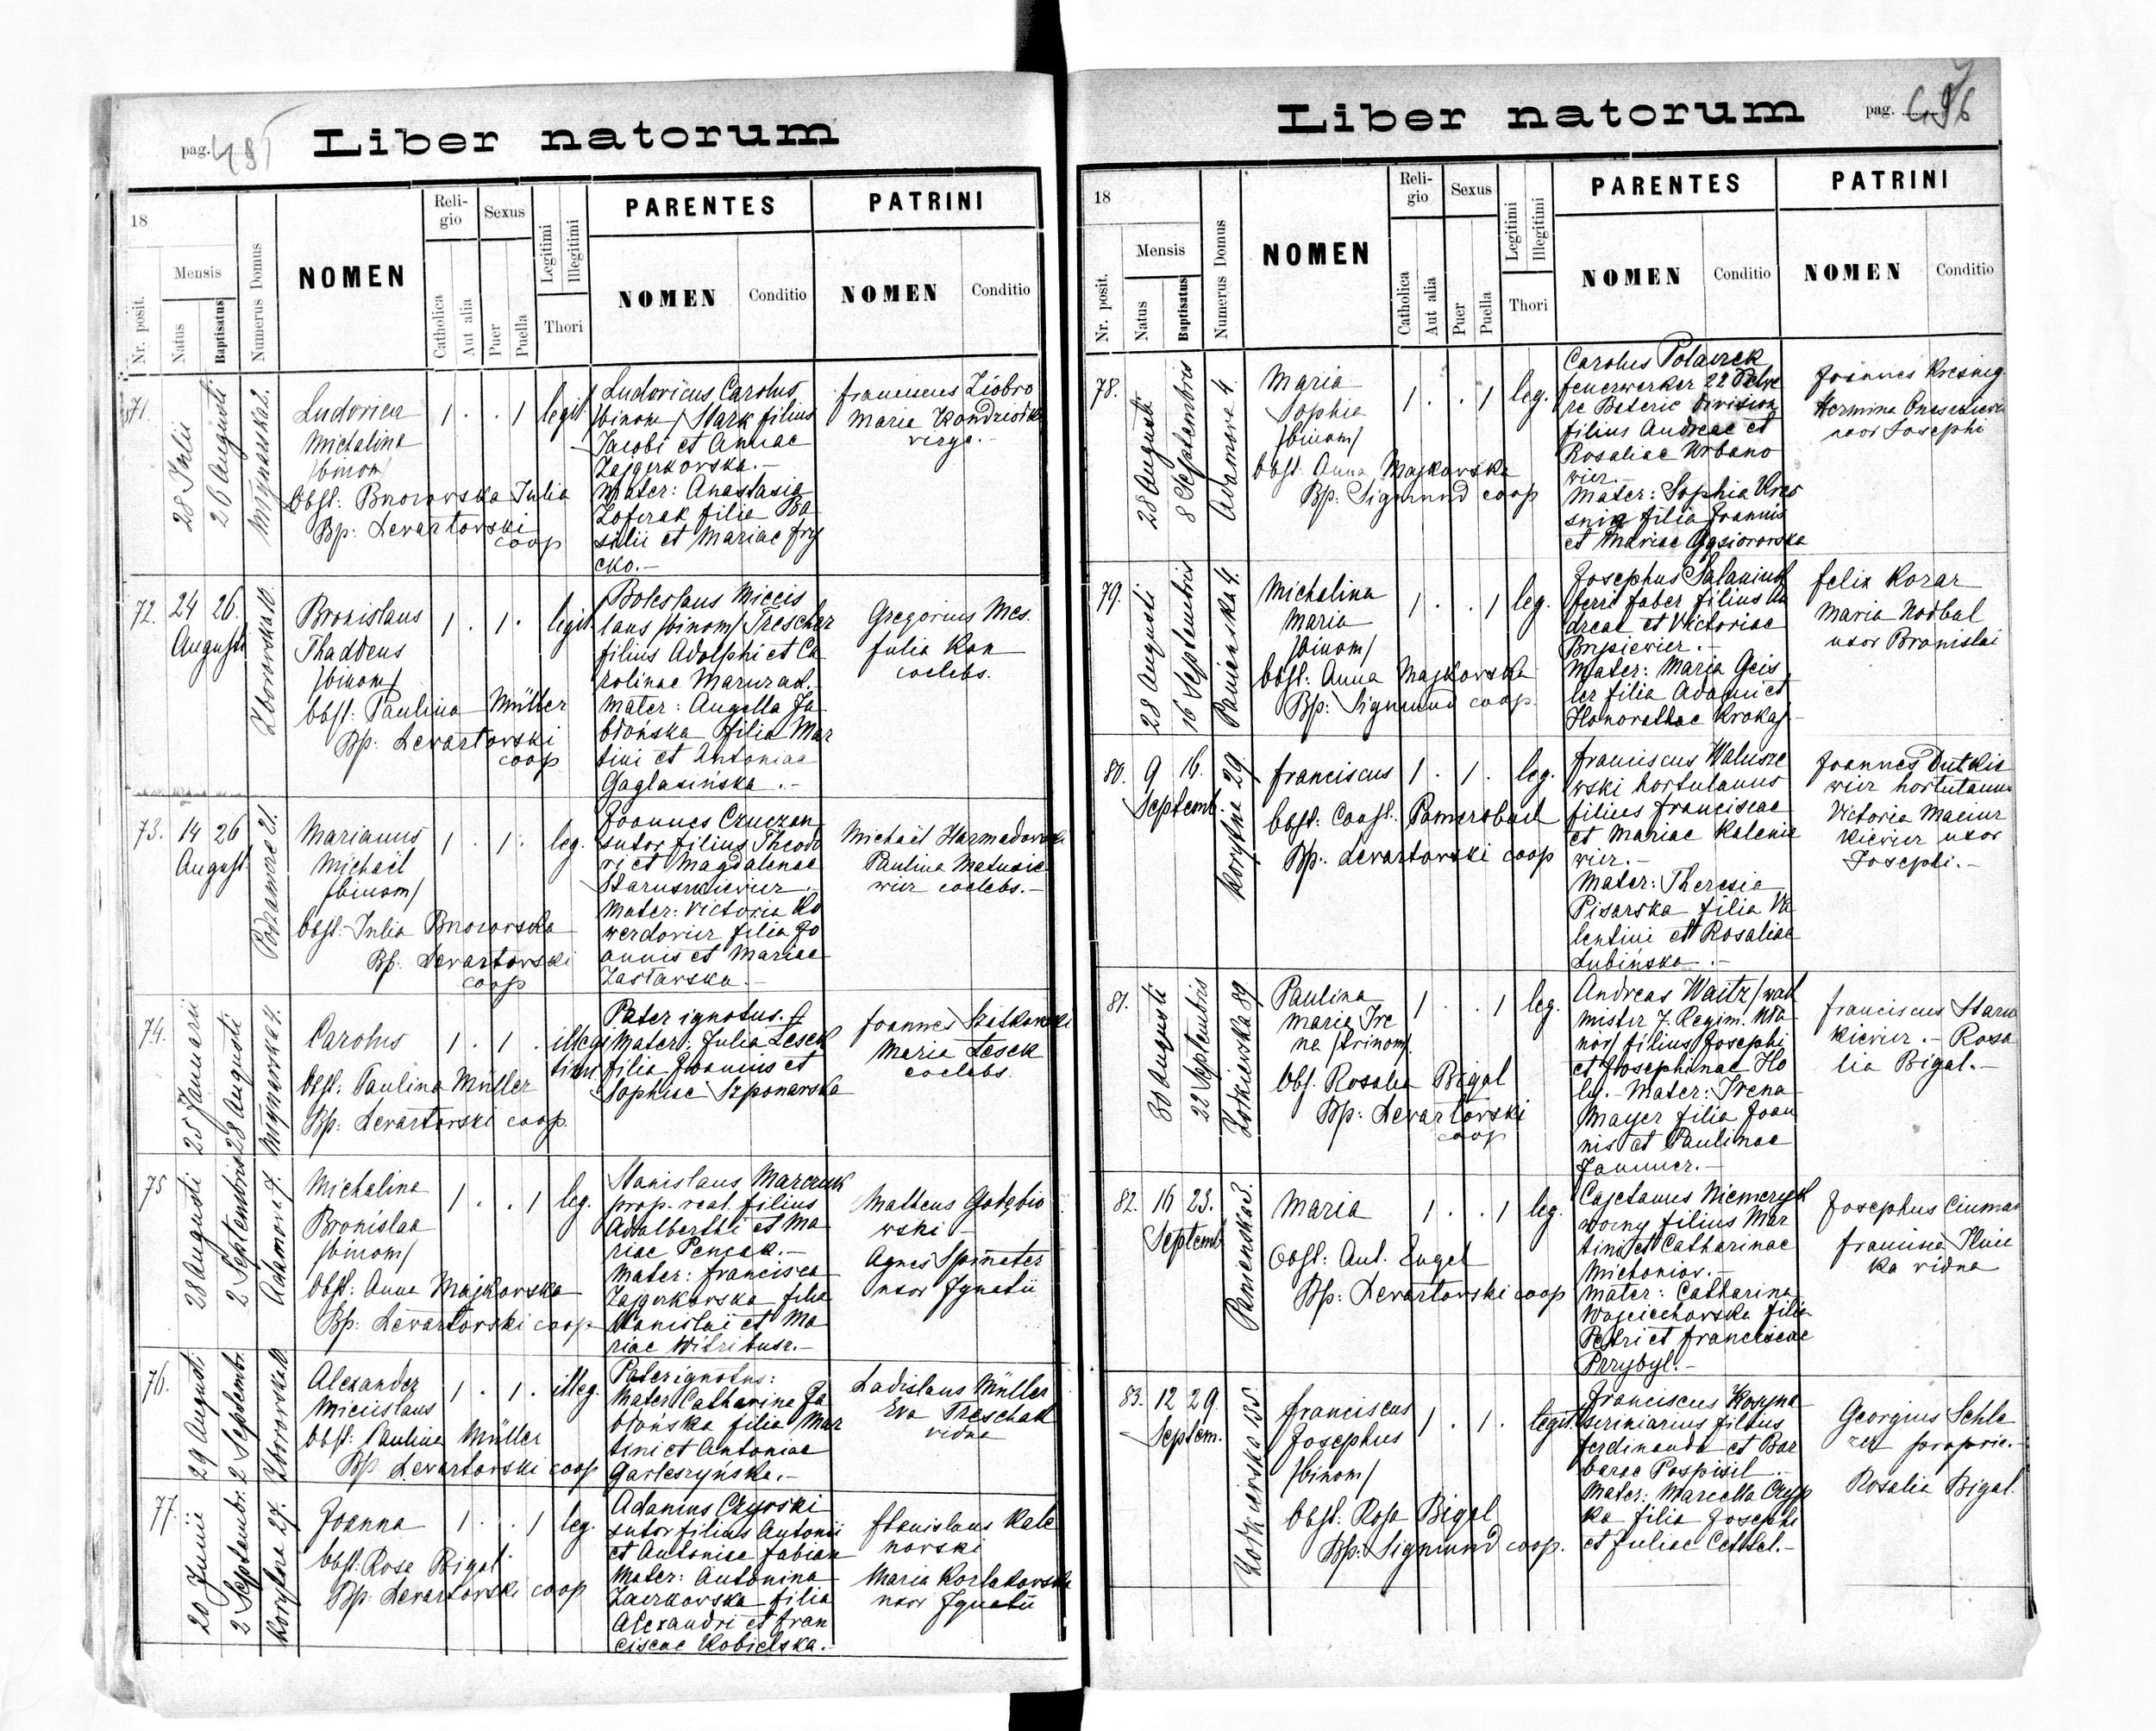 pag. 495
Liber natorum
18
Nr. posit.
Mensis
Natus
Baptisatus
Numerus Domus
NOMEN
Reli-
gio
Catholica
Aut alia
Sexus
Puer
Puella
Legitimi
Illegitimi
Thori
PARENTES
NOMEN
Conditio
PATRINI
NOMEN
Conditio
71.
28 Julii
26 Augusti
Młynarska 2.
Ludovica
Michalina
/binom/
Obst: Bnorovska Julia
Bp: Levartovski
coop
1 . . 1
legit
Ludovicus Carolus
/binom/ Stark filius
Jacobi et Annae
Zajgerkovska.-
Mater: Anastasia
Zoferak filia Ba
silii et Mariae Fry
cko.-
Franciscus Ziobro
Maria
virgo.-
72.
24 26.
Augusti
Zborovska 10.
Bronislaus
Thaddeus
/binom/
Obst: Paulina Müller
Bp: Levartovski
coop
1 . 1 .
legit.
Boleslaus Miecis
laus /binom/ Trescher
filius Adolphi et Ca
rolinae
Mater: Angella Ja
błońska filia Mar
tini et Antoniae
Gaglasińska.-
Gregorius Mes.
Julia Kon
coelebs.
73.
14 26
August.
Podzamcze 21.
Marianus
Michaël
/binom/
Obst: Julia Bnorovska
Bp. Levartovski
coop
1 . 1 .
leg.
Joannes Czuczan
sutor filius Theodo
ri et Magdalenae
Staruszkievicz.-
Mater: Victoria Ko
werdovicz filia Jo
annis et Mariae
Zastavska.-
Michaël
Paulina Matusie
wicz coelebs.-
74.
25 Januarii
28 Augusti
Młynarska 4.
Carolus
Obst: Paulina Müller
Bp: Levartovski coop.
1 . 1 .
illegi
tim
Pater ignotus.
Mater: Julia Lesek
filia Joannis et
Sophiae Szponarska
Joannes
Maria Lesek
coelebs.
75
28 Augusti
2 Septembris
Adamova 7.
Michalina
Bronislaa
/binom/
Obst: Anna Majkovska
Bp: Levartovski coop
1 . . 1
leg.
Stanislaus Marczuk
prop. real. filius
Adalberthi et Ma
riae Pencak.-
Mater: Francisca
Zajgerkovska filia
Stanislai et Ma
riae
Matheus Gołębio
wski -
Agnes
uxor Ignatii
76.
29 Augusti
2 Septembr.
Zborovska 10
Alexander
Miecislaus
Obst: Paulina Müller
Bp. Levartovski coop
1 . 1 .
illeg.
Pater ignotus:
Mater Catharina Ja
błońska filia Mar
tini et Antoniae
Garleszyńska.-
Ladislaus Müller
Eva Treschak
vidua
77.
20 Junii
2 Septembr.
Korytna 27.
Joanna
Obst. Rosa Bigal.
Bp: Levartovski coop
1 . . 1
leg.
Adamus Czyrski
sutor filius Antonii
et Antoniae Fabian
Mater: Antonina
Zaerkovska filia
Alexandri et Fran
ciscae Kobielska.-
Stanislaus Kali
norski
Maria Korlakovska
uxor Ignatii
pag. 496
Liber natorum
18
Nr. posit.
Mensis
Natus
Baptisatus
Numerus Domus
NOMEN
Reli-
gio
Catholica
Aut alia
Sexus
Puer
Puella
Legitimi
Illegitimi
Thori
PARENTES
NOMEN
Conditio
PATRINI
NOMEN
Conditio
78.
28 Augusti
8 Septembris
Adamova 4.
Maria
Sophia
/binom/
Obst. Anna Majkovska
Bp: Sigmund coop
1 . . 1
leg.
Carolus Polaczek
feuerwerker 22
re Baterie Division
filius Andreae et
Rosaliae Urbano
vicz.-
Mater: Sophia Kres
snig filia Joannis
et Mariae Gąsiorovska
Joannes Kresnig
Hermina
uxor Josephi
79.
28 Augusti
16 Septembris
Panienska 4.
Michalina
Maria
/binom/
Obst: Anna Majkovska
Bp: Sigmund coop.
1 . . 1
leg.
Josephus
ferri faber filius An
dreae et Victoriae
Mater: Maria Geis
ler filia Adami et
Honorathae Krokaj-
Felix Kozar
Maria Nadbal
uxor Bronislai
80.
9 16.
Septemb.
Korytna 29
Franciscus
Obst: Const. Pamersbach
Bp: Levartovski coop
1 . 1 .
leg.
Franciscus Walusze
wski hortulanus
filius Franciscae
et Mariae Kalenie
vicz.-
Mater: Theresia
Pisarska filia Va
lentini et Rosaliae
Lubińska.-
Joannes Dutkie
vicz hortulanus
Victoria Maciusz
kievicz uxor
Josephi.-
81.
30 Augusti
22 Septembris
Zołkievska 89
Paulina
Maria Ire
na /trinom/.
Obs. Rosalia Bigal
Bp: Levartovski
coop
1 . . 1
leg.
Andreas Waitz /wach
mister 7. Regim. Hła
nów/ filius Josephi
et Josephinae Ho
ly.- Mater: Irena
Mayer filia Joan
nis et Paulinae
Jammer.-
Franciscus Staru
kievicz.- Rosa
lia Bigal.-
82.
16 23.
Septemb
Panienska 5.
Maria
Obst: Ant. Engel
Bp: Levartovski coop
1 . . 1
leg.
Cajetanus Niemczyk
woźny filius Mar
tini et Catharinae
Mater: Catharina
Wojciechovska filia
Petri et Franciscae
Przybyl.-
Josephus Ciuman
Francisca
ka vidua
83.
12 29.
Septem.
Zołkievska 135.
Franciscus
Josephus
/binom/
Obst. Rosa Bigal
Bp. Sigmund coop.
1 . 1 .
legit.
Franciscus Kosyna
scriniarius filius
Ferdinandi et Bar
barae Pospisil.-
Mater: Marcella Czyp
ka filia Josephi
et Juliae Cettel.-
Georgius Schle
zer proprie.-
Rosalia Bigal.